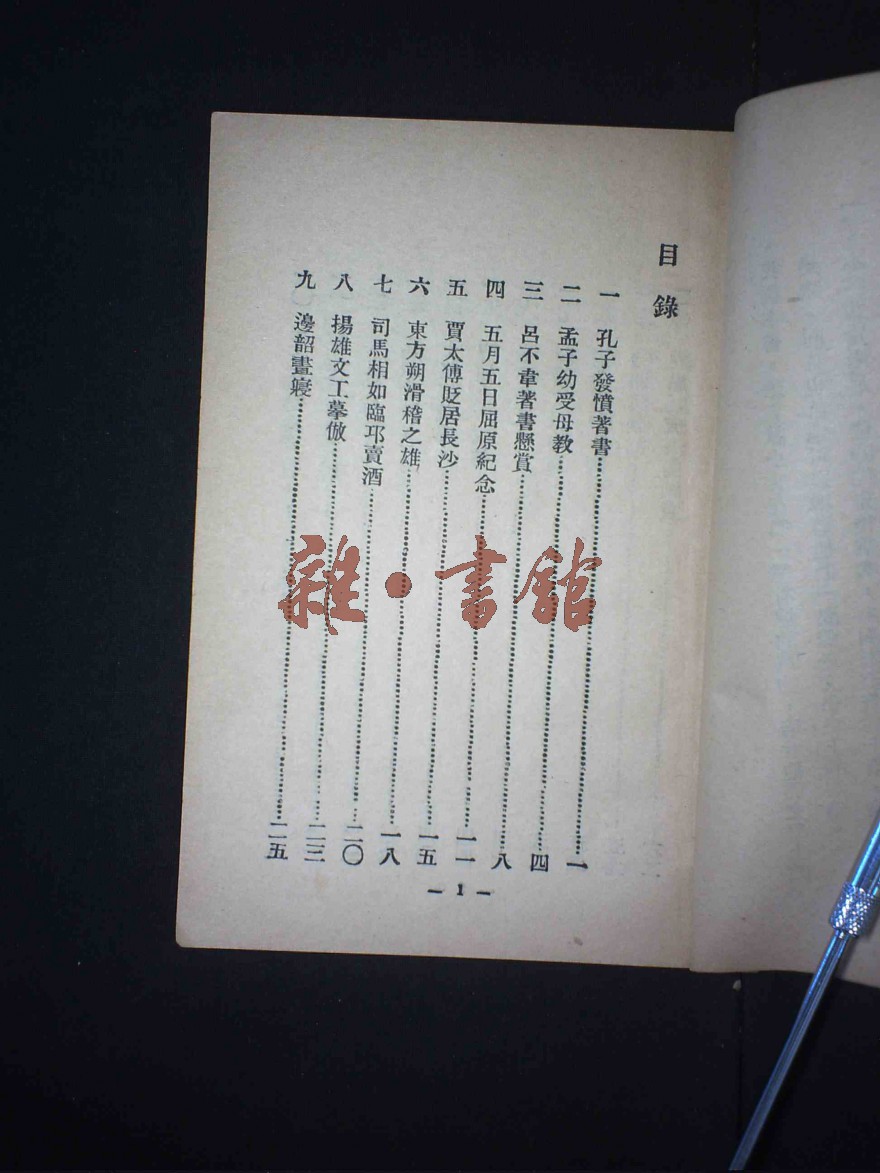 目錄
一 孔子發憤著書……一
二 孟子幼受母教……四
三 呂不韋著書懸賞……八
四 五月五日屈原紀念……一一
五 賈太傅貶居長沙……一五
六 東方朔滑稽之雄……一八
七 司馬相如臨邛賣酒……二〇
八 揚雄文工摹倣……二三
九 邊韶晝寢……二五
— 1 —
雜·書館